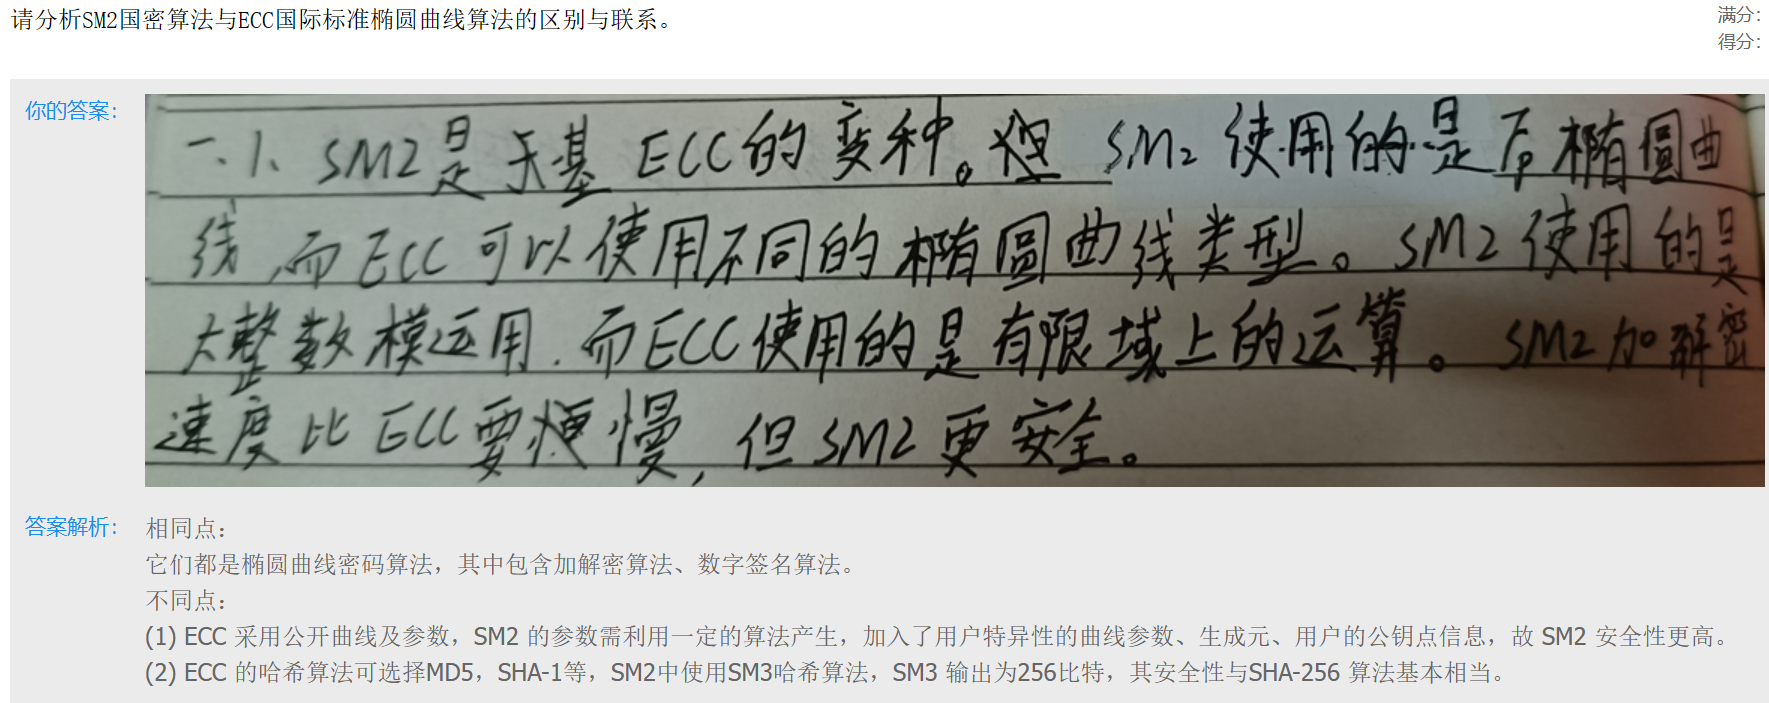 请分析SM2国密算法与ECC国际标准椭圆曲线算法的区别与联系。
满分：
得分：
你的答案：
一.1、SM2是于基ECC的变种。但SM2使用的是椭圆曲
线,而ECC可以使用不同的椭圆曲线类型。SM2使用的是
大整数模运用.而ECC使用的是有限域上的运算。SM2加解密
速度比ECC要慢,但SM2更安全。
答案解析：
相同点：
它们都是椭圆曲线密码算法，其中包含加解密算法、数字签名算法。
不同点：
(1) ECC 采用公开曲线及参数，SM2 的参数需利用一定的算法产生，加入了用户特异性的曲线参数、生成元、用户的公钥点信息，故 SM2 安全性更高。
(2) ECC 的哈希算法可选择MD5，SHA-1等，SM2中使用SM3哈希算法，SM3 输出为256比特，其安全性与SHA-256 算法基本相当。